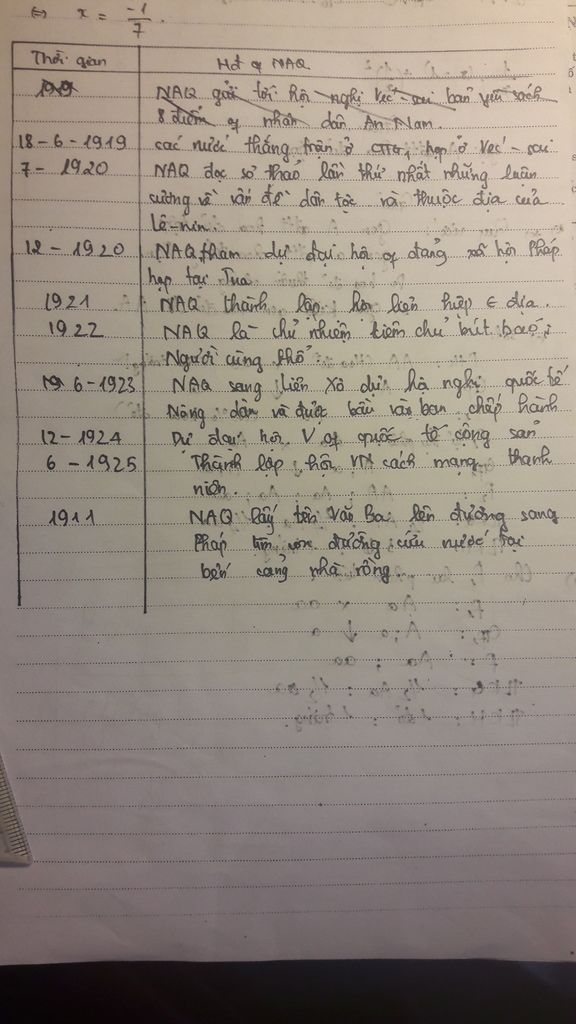 ⇔ x = -1/7.
Thời gian Hđ of NAQ
1919 NAQ gửi tới hội nghị Véc-sai bản yêu sách
8 điểm of nhân dân An Nam.
18-6-1919 các nước thắng trận ở CTTG, họp ở Véc-sai
7-1920 NAQ đọc sơ thảo lần thứ nhất những luận
cương về vấn đề dân tộc và thuộc địa của
Lê-nin.
12-1920 NAQ tham dự đại hội of đảng xã hội Pháp
họp tại Tua.
1921 NAQ thành lập hội liên hiệp € địa.
1922 NAQ là chủ nhiệm kiêm chủ bút báo;
Người cùng khổ.
6-1923 NAQ sang Liên Xô dự hộ nghị quốc tế
Nông dân và được bầu vào ban chấp hành
12-1924 Dự đại hội V of quốc tế cộng sản
6-1925 Thành lập hội VN cách mạng thanh
niên.
1911 NAQ lấy tên Văn Ba lên đường sang
Pháp tìm con đường cứu nước tại
bến cảng nhà rông.